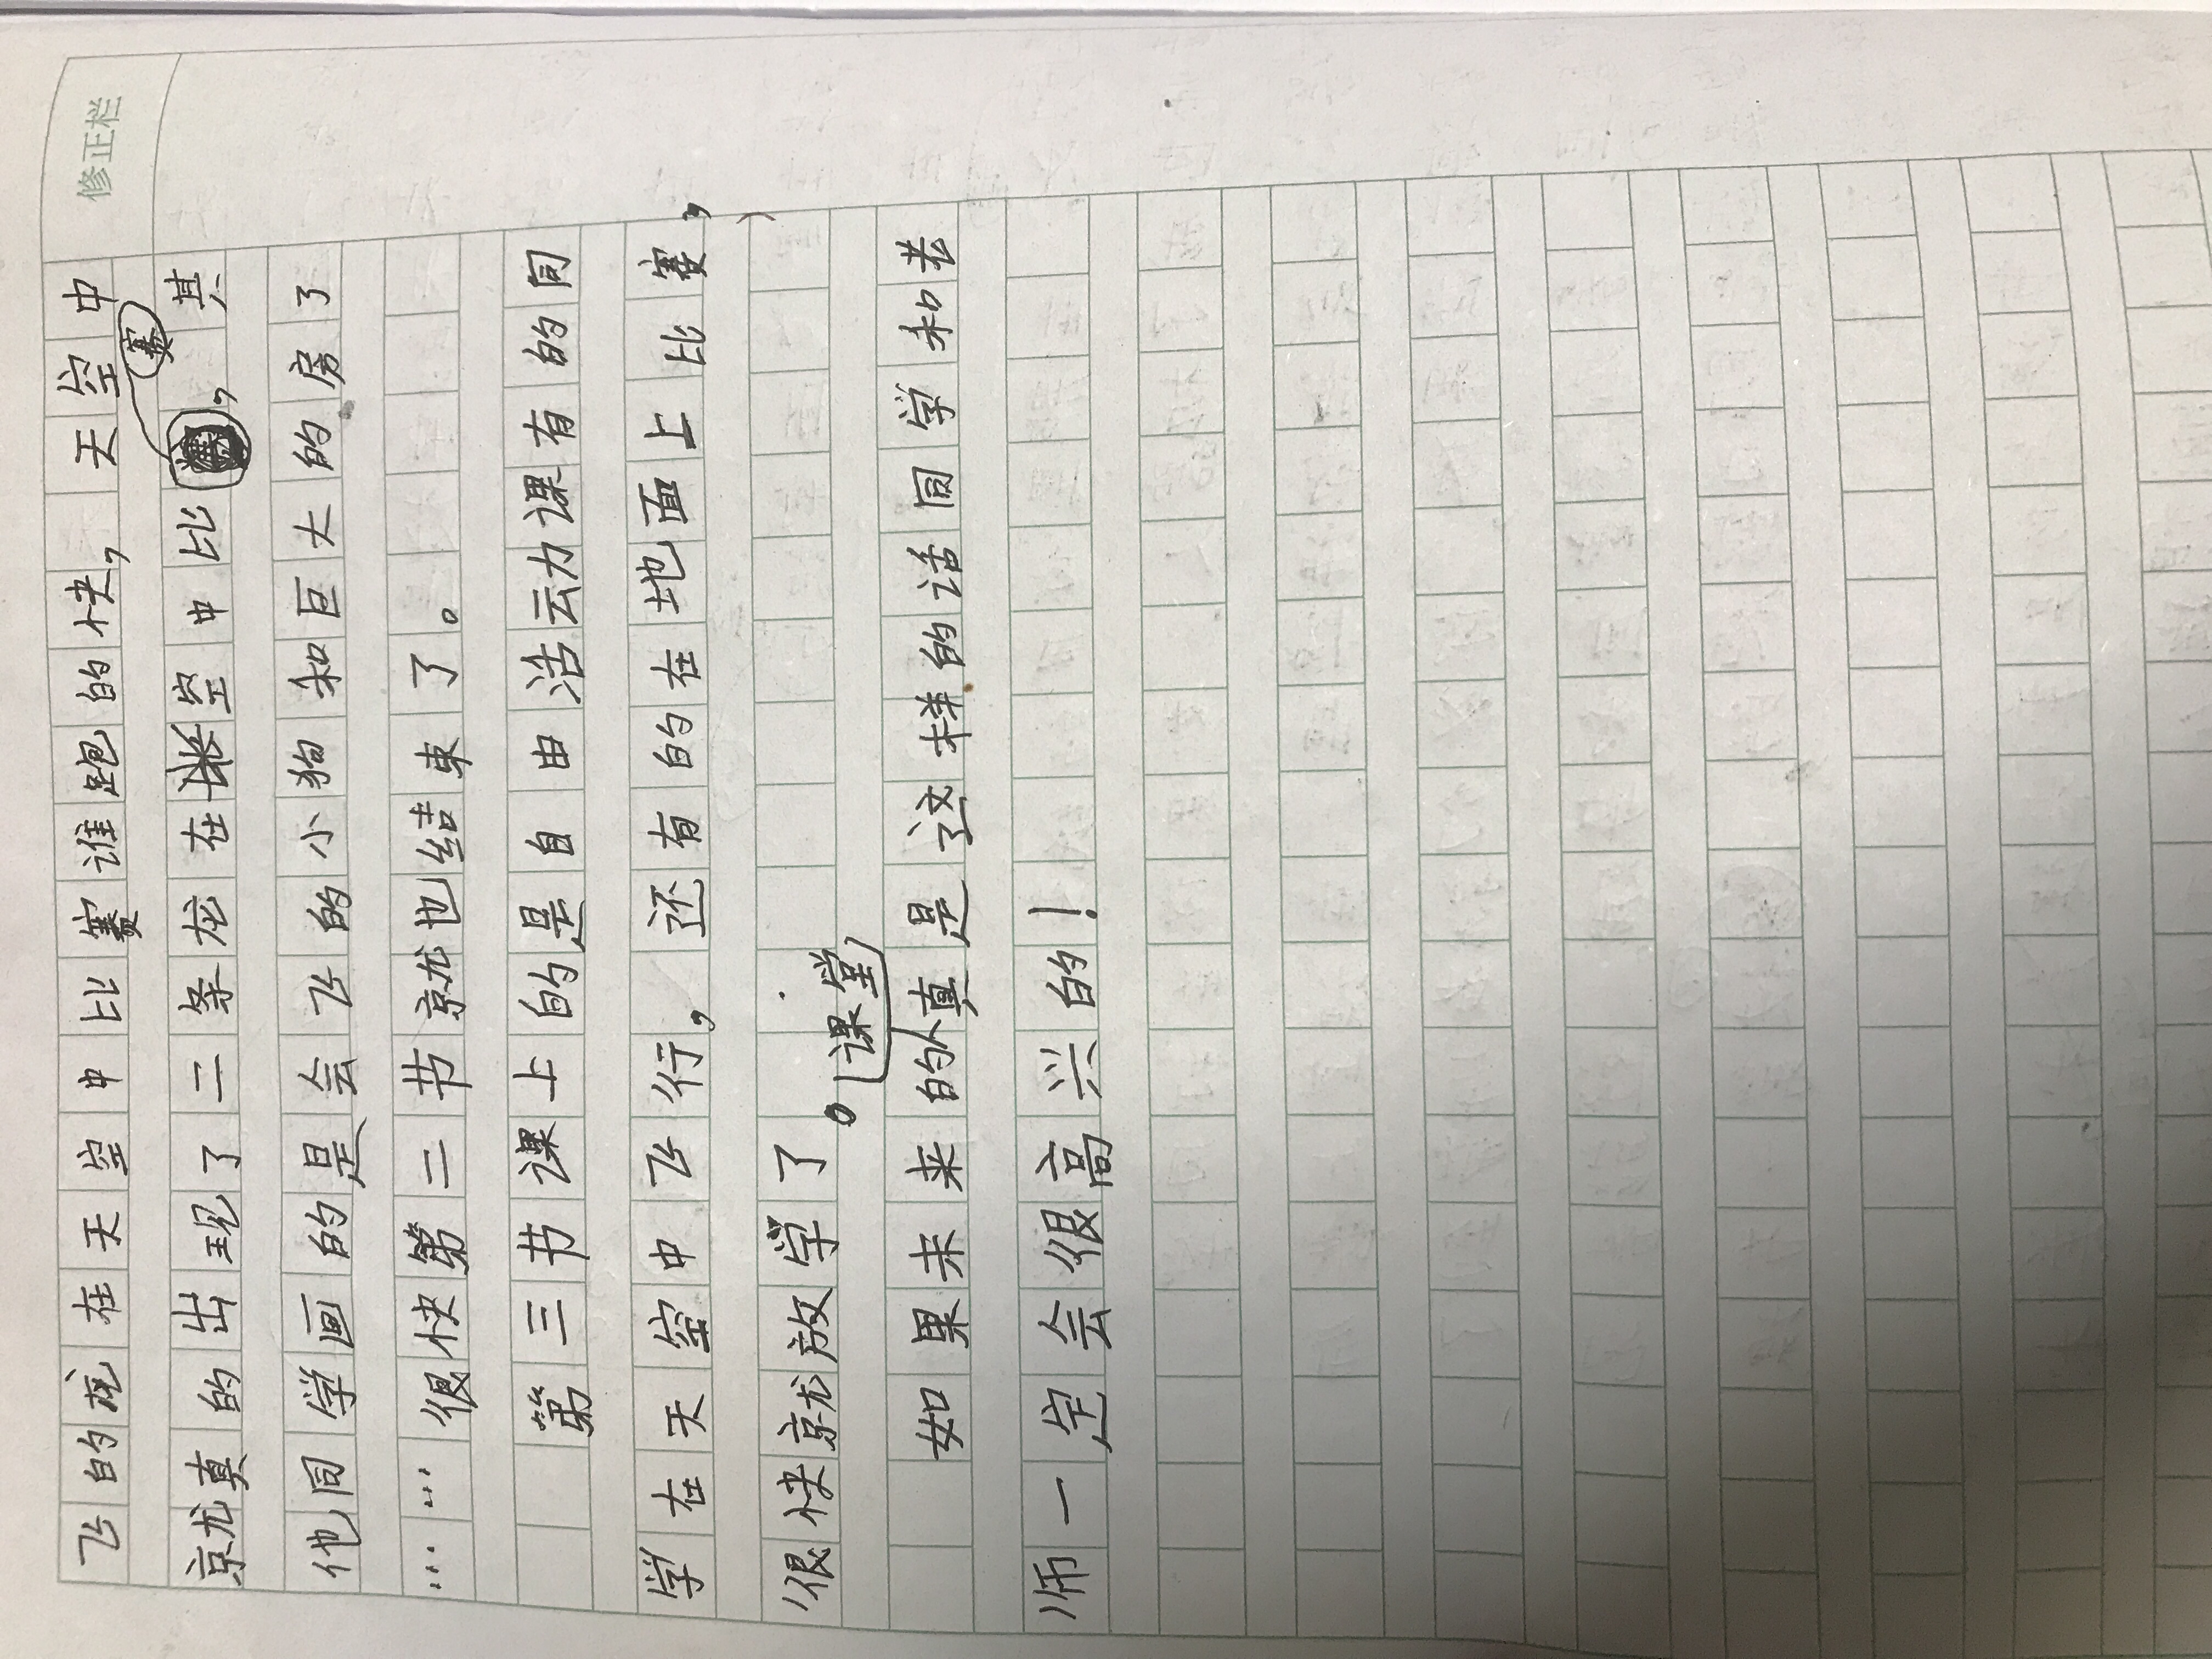 修正栏
飞的龙在天空中比赛谁跑的快，天空中
就真的出现了二条龙在空中比赛，其
他同学画的是会飞的小狗和巨大的房了
……很快第二节就也结束了。
第三节课上的是自由活动课有的同
学在天空中飞行，还有的在地面上比赛，
很快就放学了。
如果未来的课堂真是这样的话同学和老
师一定会很高兴的！